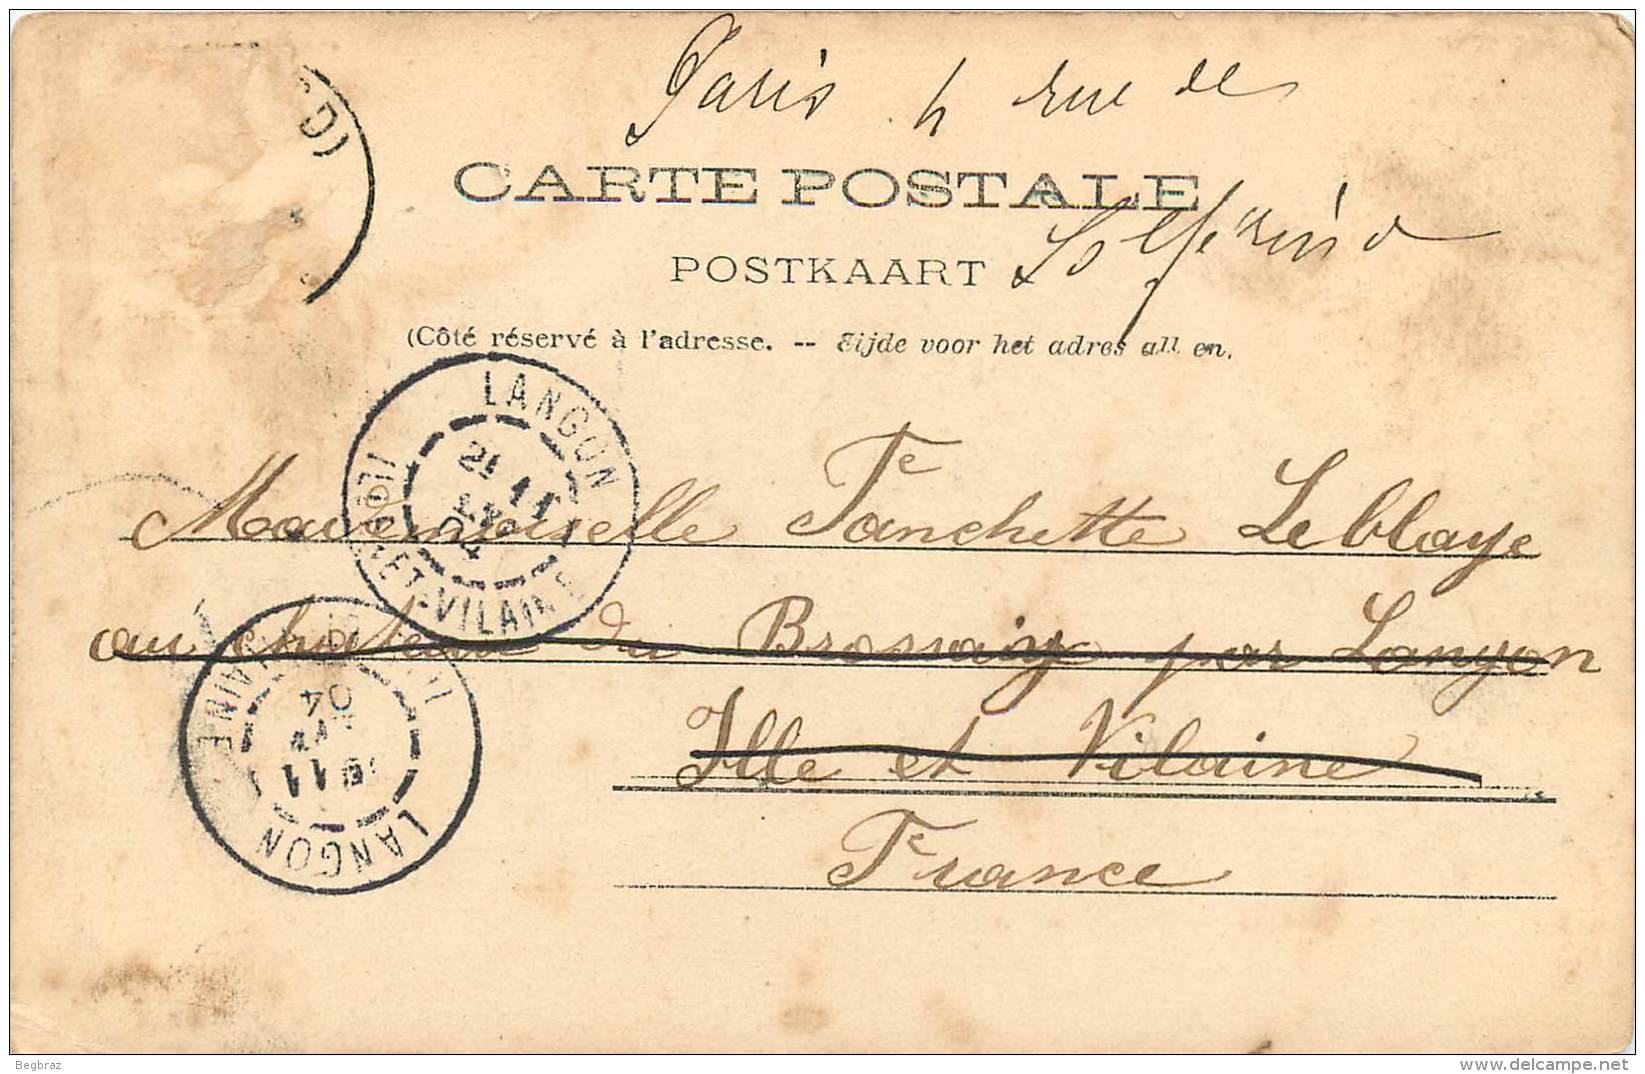 Paris 4 rue de
CARTE POSTALE
Solférino
POSTKAART
(Côté réservé à l'adresse. -- Zijde voor het adres all en.
LANGON
ILLE-ET-VILAINE
11
04
Mademoiselle Fanchette Leblaye
au chateau du Brossaix par Langon
Ille et Vilaine
France
LANGON
11
04
VILAINE
Begbraz
www.delcampe.net